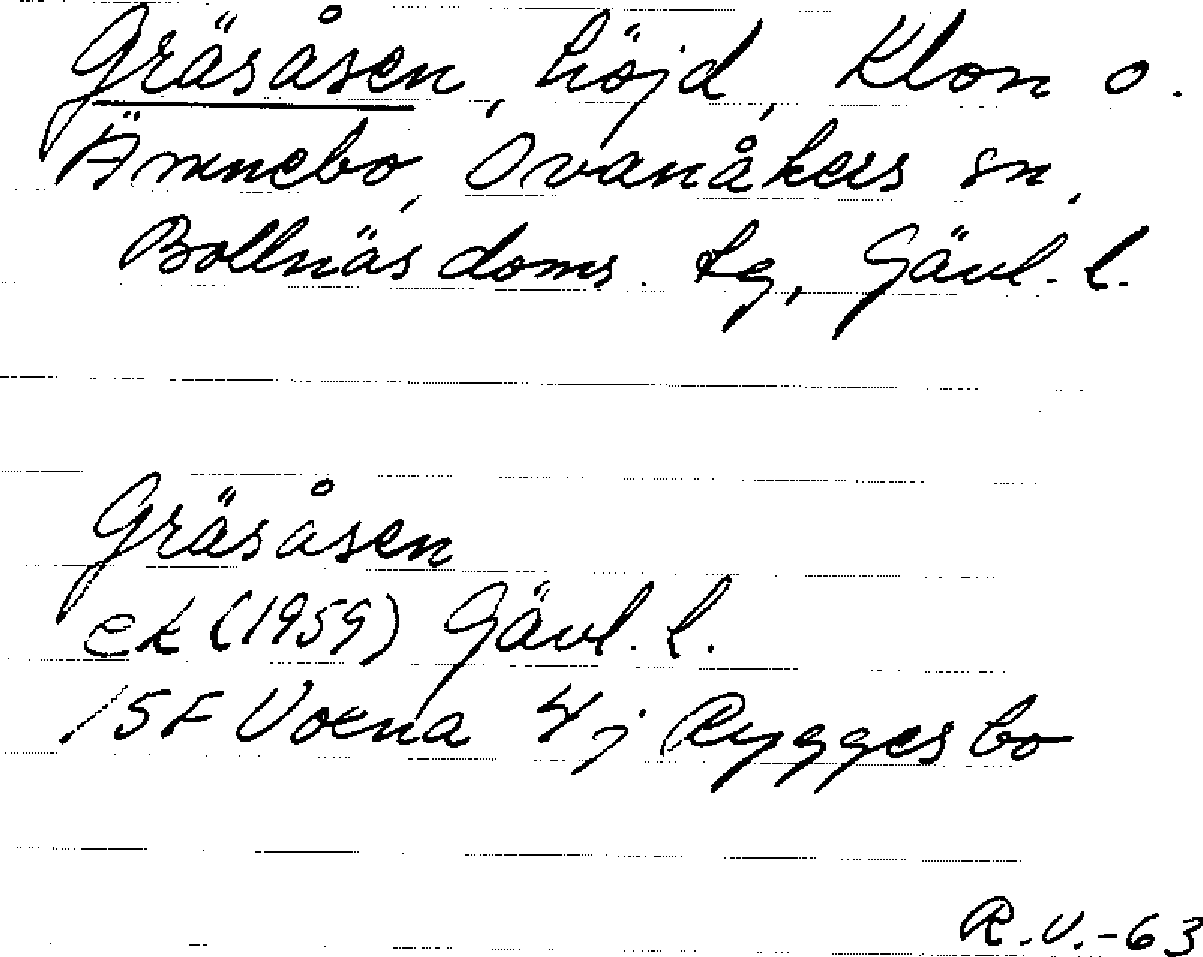 Gräsåsen, höjd, Klon o.
Ämnebo, Ovanåkers sn,
Bollnäs doms. tg, Gävl. l.
Gräsåsen
ek (1959) Gävl. l.
15F Voxna 4j Ryggesbo
R.V.-63